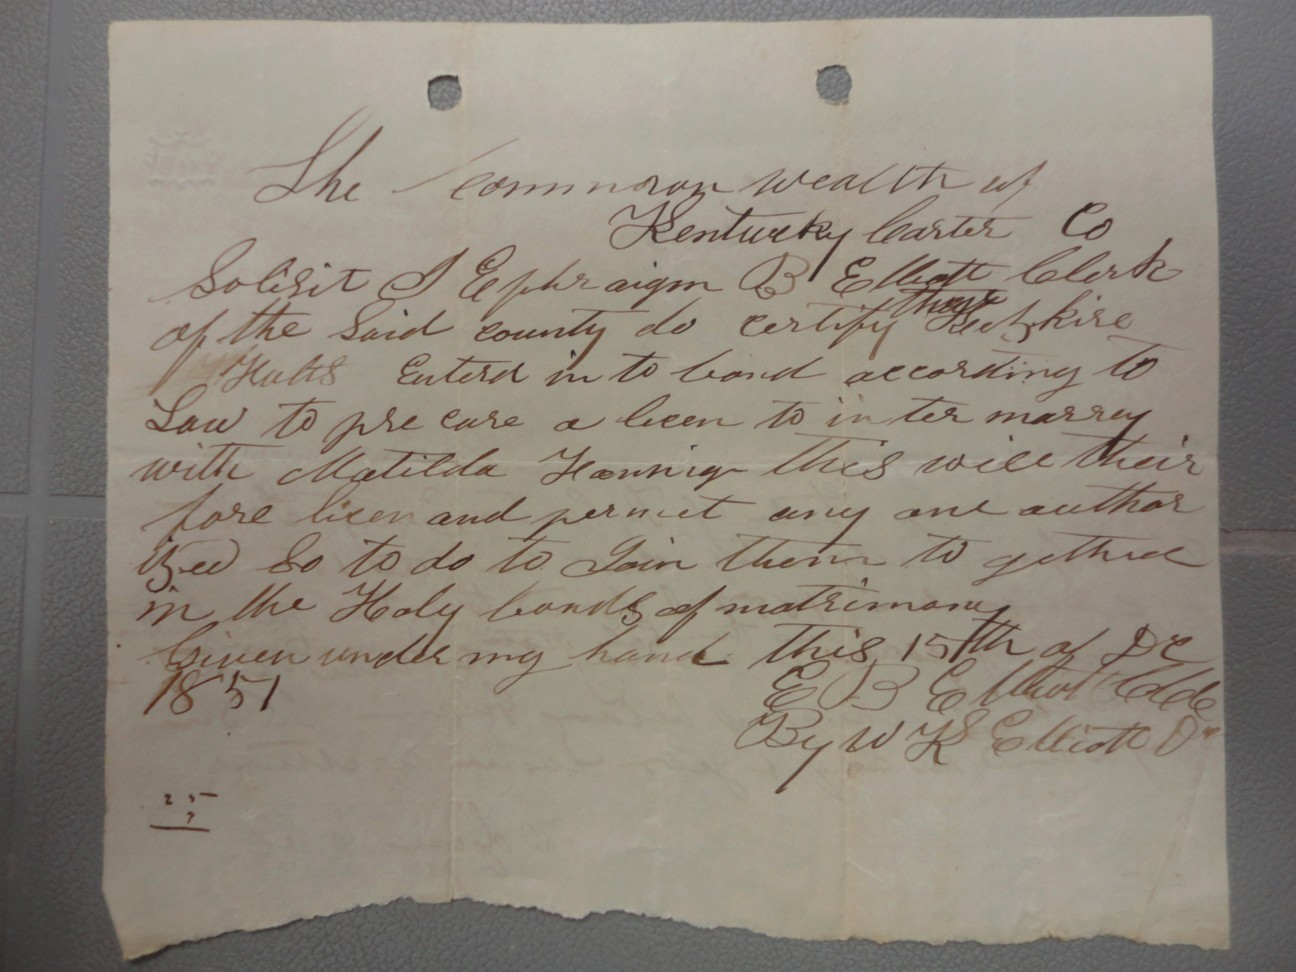 The common wealth of
Kentucky Carter Co
Solisit I Ephraigm B Elliott Clerk
of the Said county do certify that
Enterd in to bond according to
Law to pre care a licen to in ter marrey
with Matilda this will their
fore licen and permit any one author
ized So to do to Join them to gether
in the Holy bonds of matrimony
Given under my hand this 15th of DC
1851
E B Elliott Clk
By W K Elliott D
25